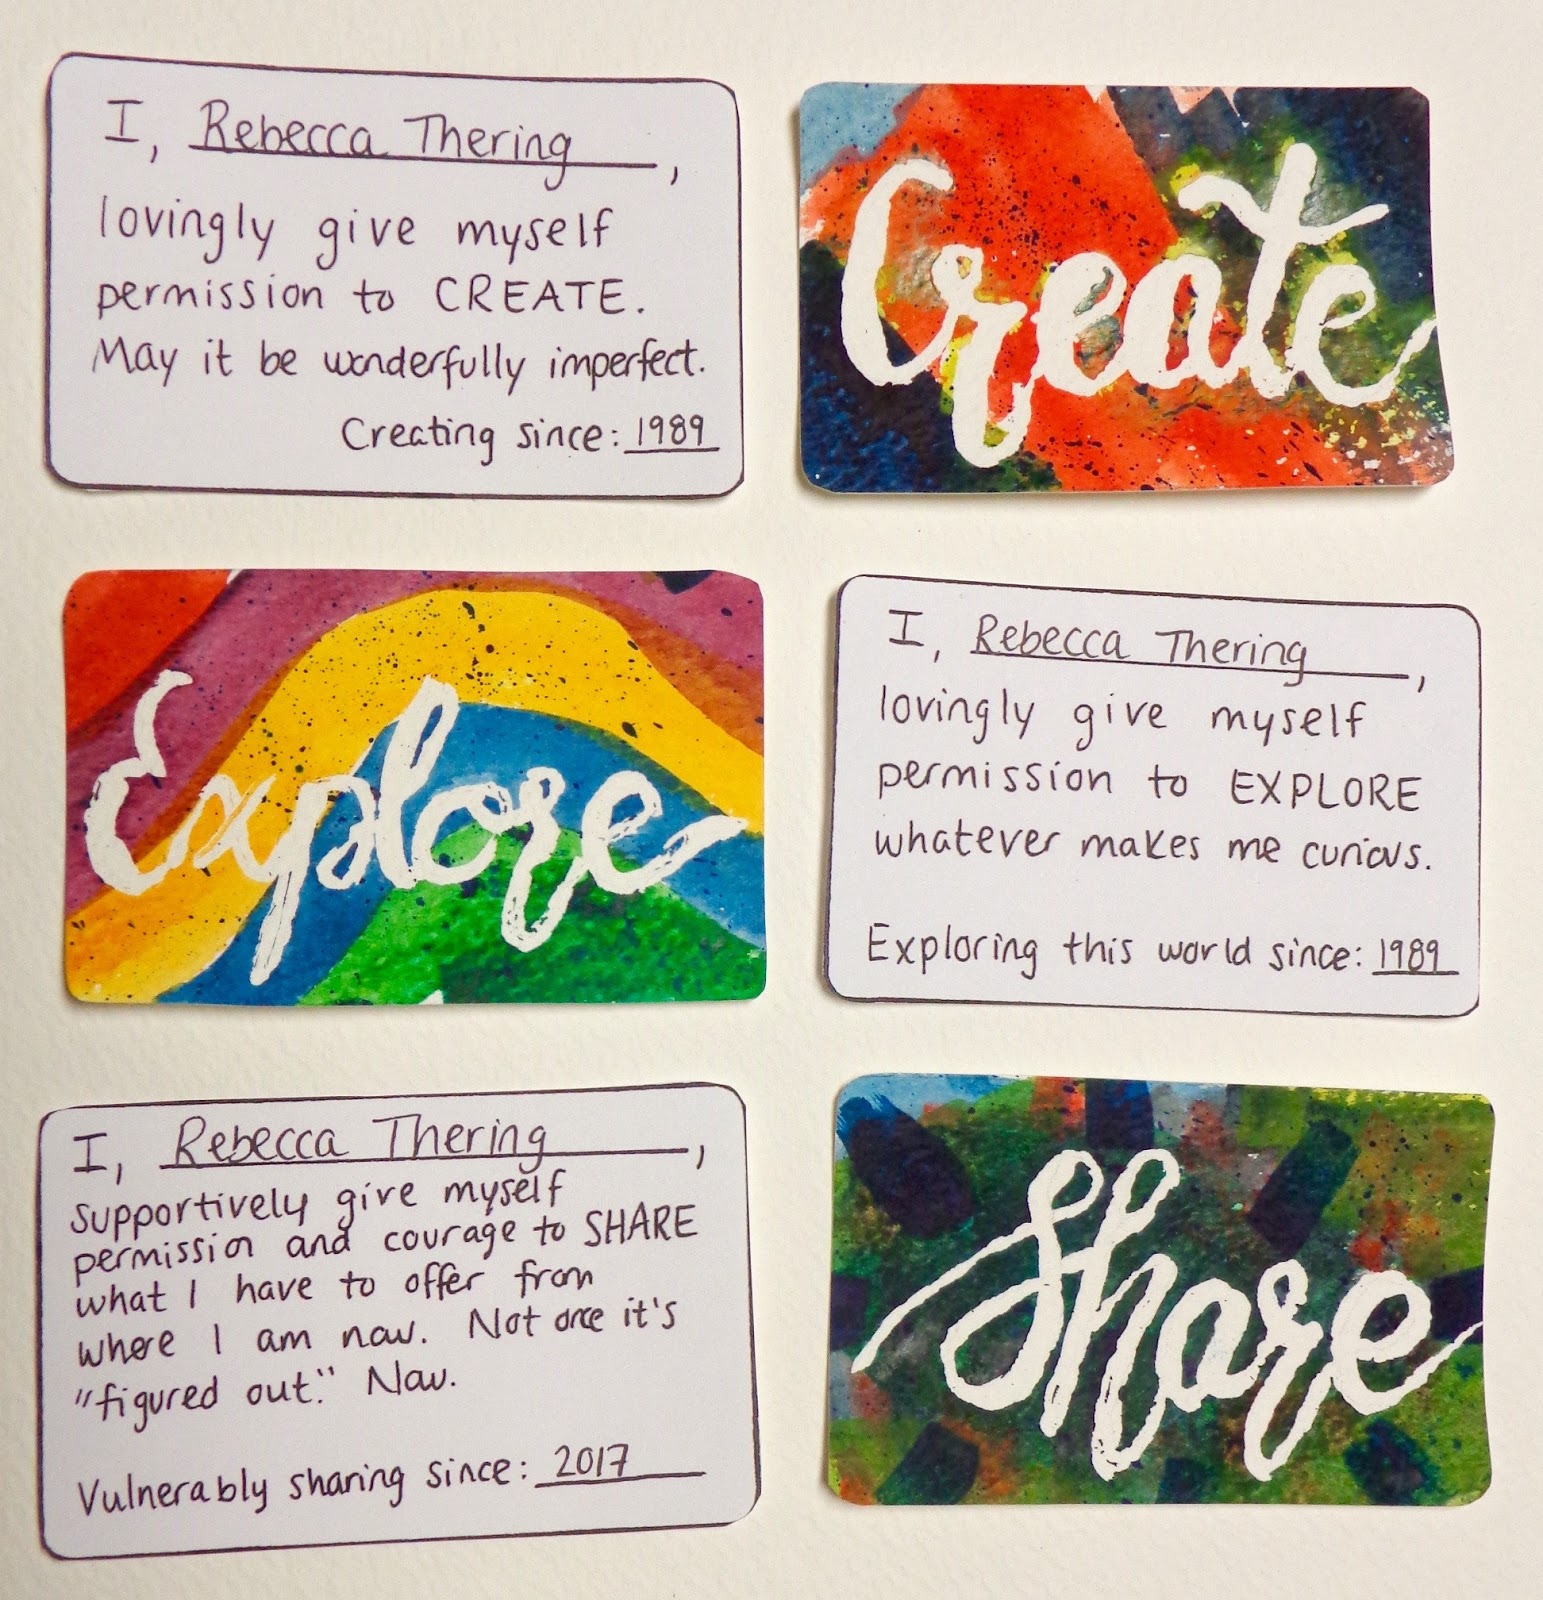 I, Rebecca Thering,
lovingly give myself
permission to CREATE.
May it be wonderfully imperfect.
Creating since: 1989
Create
Explore
I, Rebecca Thering,
lovingly give myself
permission to EXPLORE
whatever makes me curious.
Exploring this world since: 1989
I, Rebecca Thering,
supportively give myself
permission and courage to SHARE
what I have to offer from
where I am now. Not once it's
"figured out." Now.
Vulnerably sharing since: 2017
Share